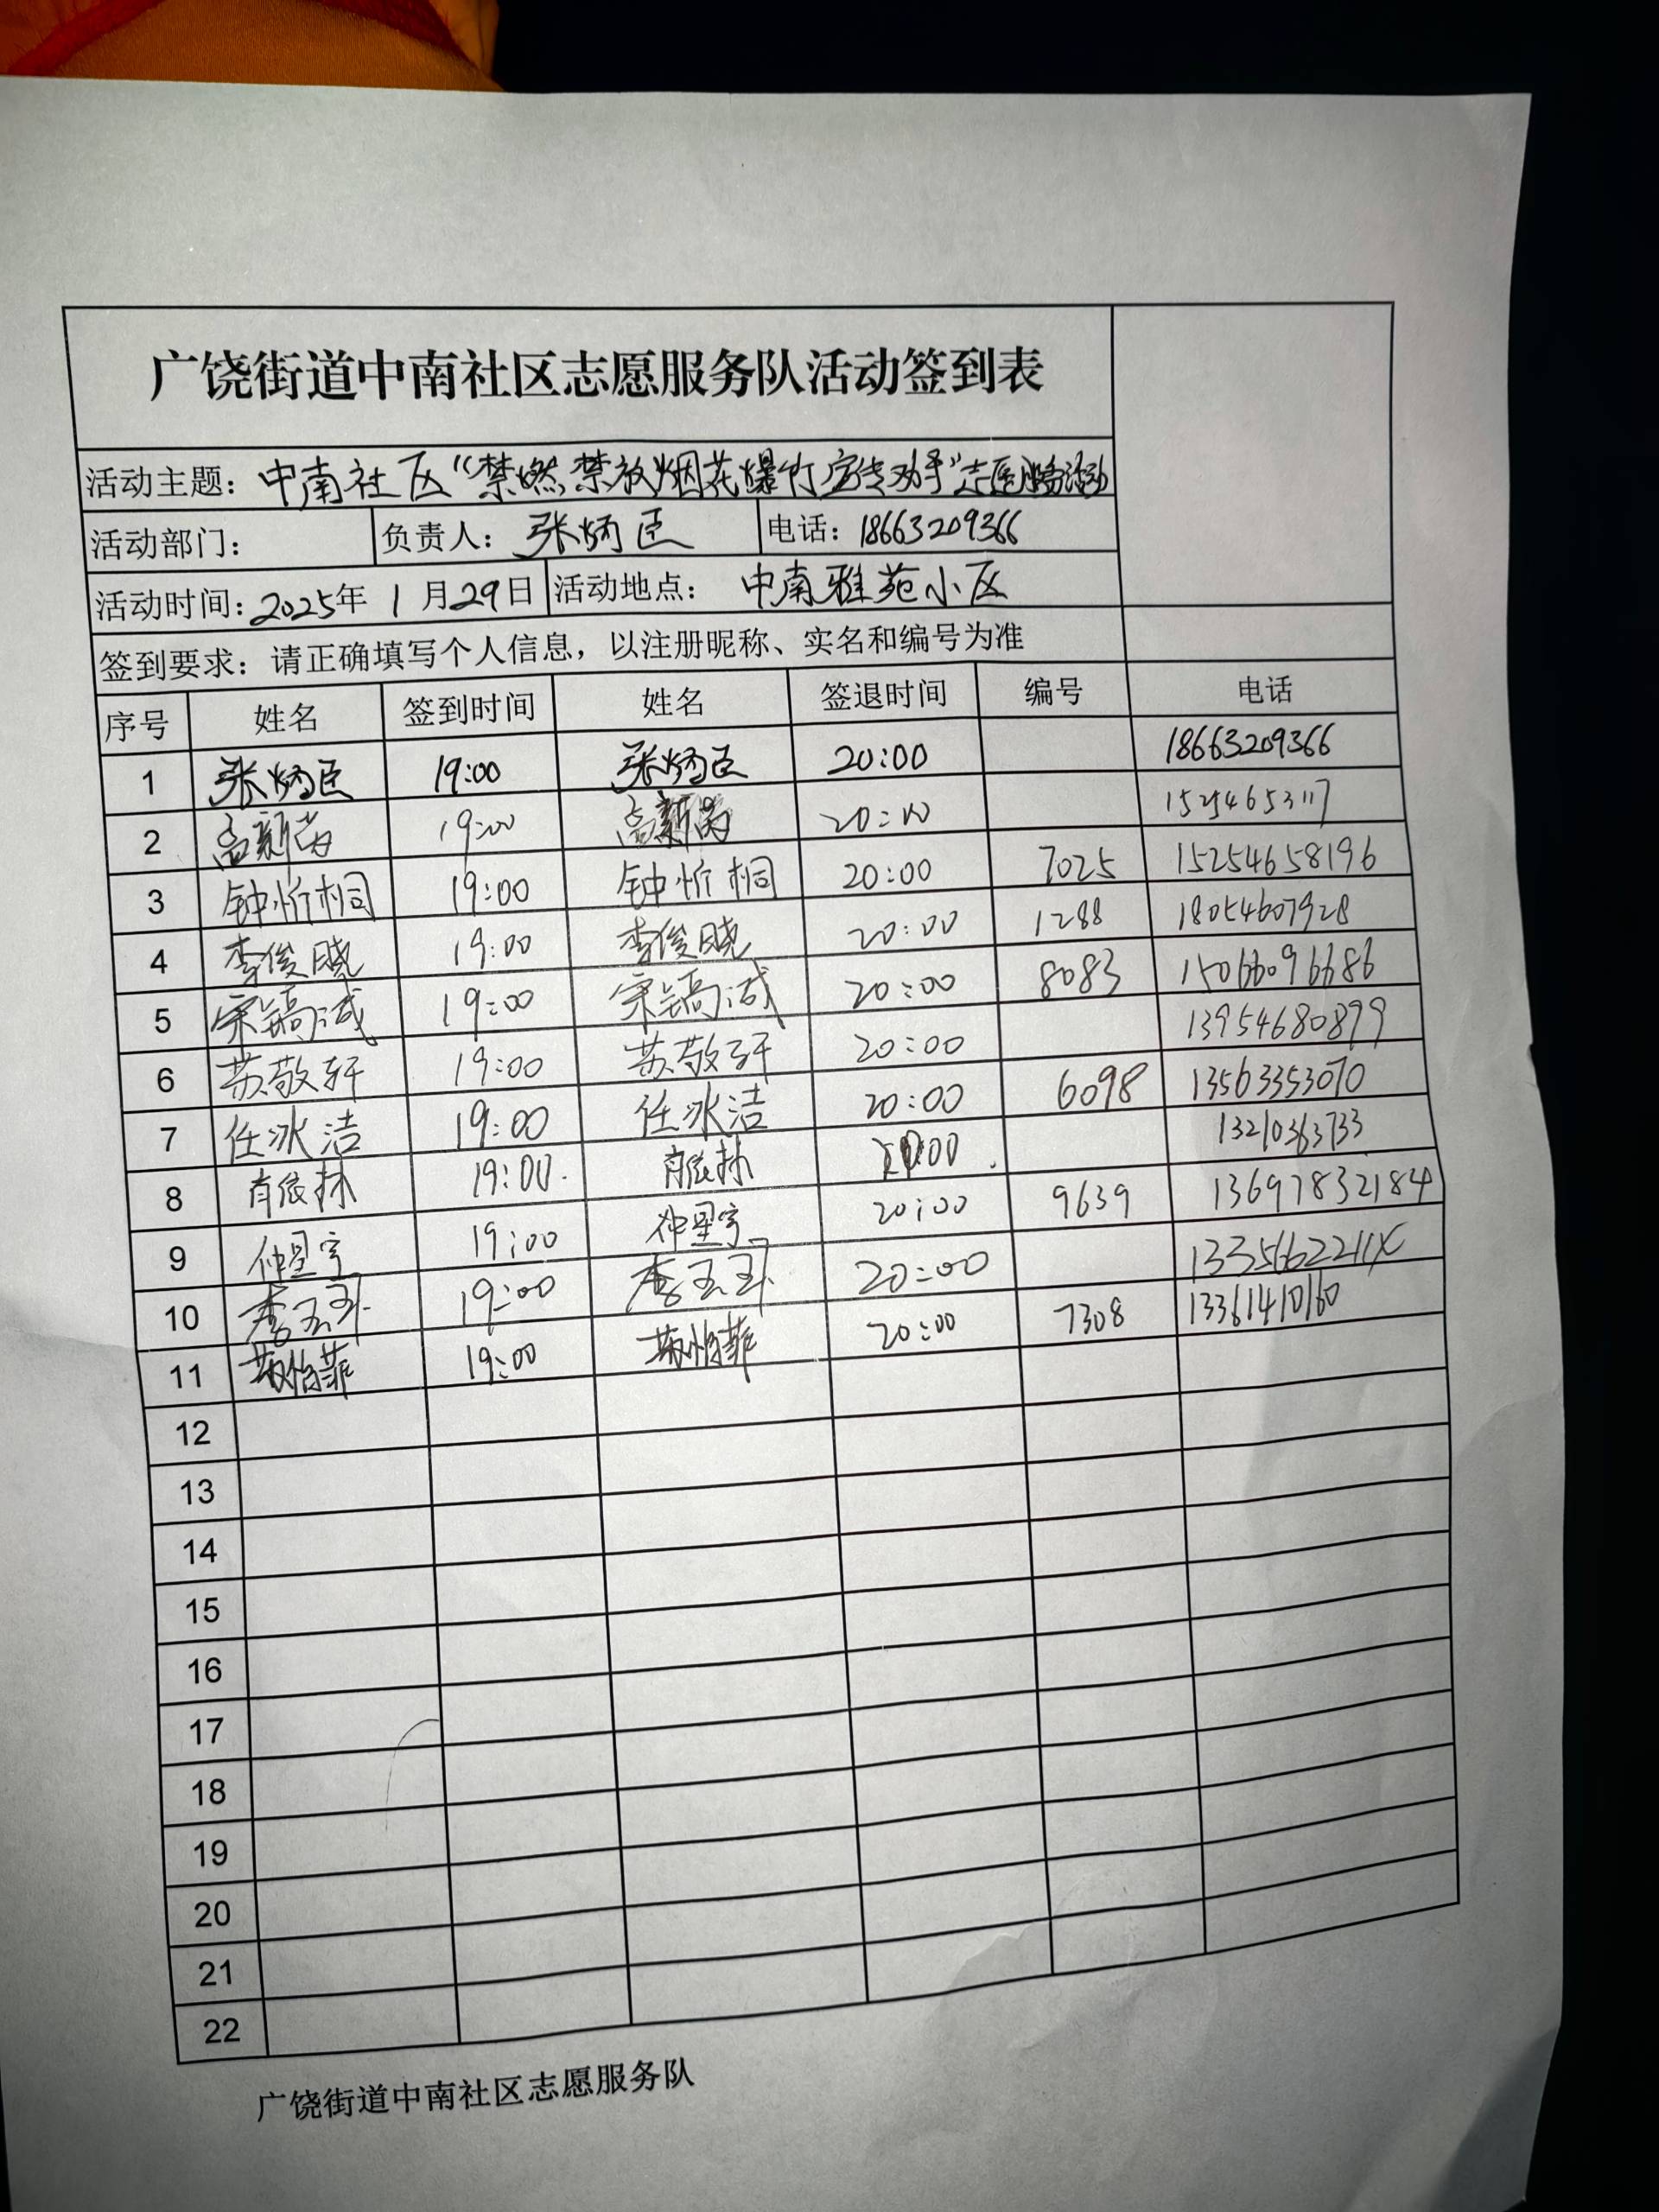 广饶街道中南社区志愿服务队活动签到表
活动主题：中南社区“禁燃禁放烟花爆竹宣传劝导”志愿服务活动
活动部门： 负责人：张炳臣 电话：18663209366
活动时间：2025年 1月29日 活动地点：中南雅苑小区
签到要求：请正确填写个人信息，以注册昵称、实名和编号为准
序号 姓名 签到时间 姓名 签退时间 编号 电话
1 张炳臣 19:00 张炳臣 20:00 18663209366
2 19:00 20:00 15254653117
3 钟忻桐 19:00 钟忻桐 20:00 7025 15254658196
4 李俊晓 19:00 李俊晓 20:00 1288 18054607928
5 宋镐诚 19:00 宋镐诚 20:00 8083 15066096686
6 苏敬轩 19:00 苏敬轩 20:00 13954680879
7 任冰洁 19:00 任冰洁 20:00 6098 13563353070
8 19:00. :00 13210363733
9 仲星宇 19:00 仲星宇 20:00 9639 13697832184
10 李玉珏 19:00 李玉珏 20:00
11 怡菲 19:00 怡菲 20:00 7308 13361410160
12
13
14
15
16
17
18
19
20
21
22
广饶街道中南社区志愿服务队